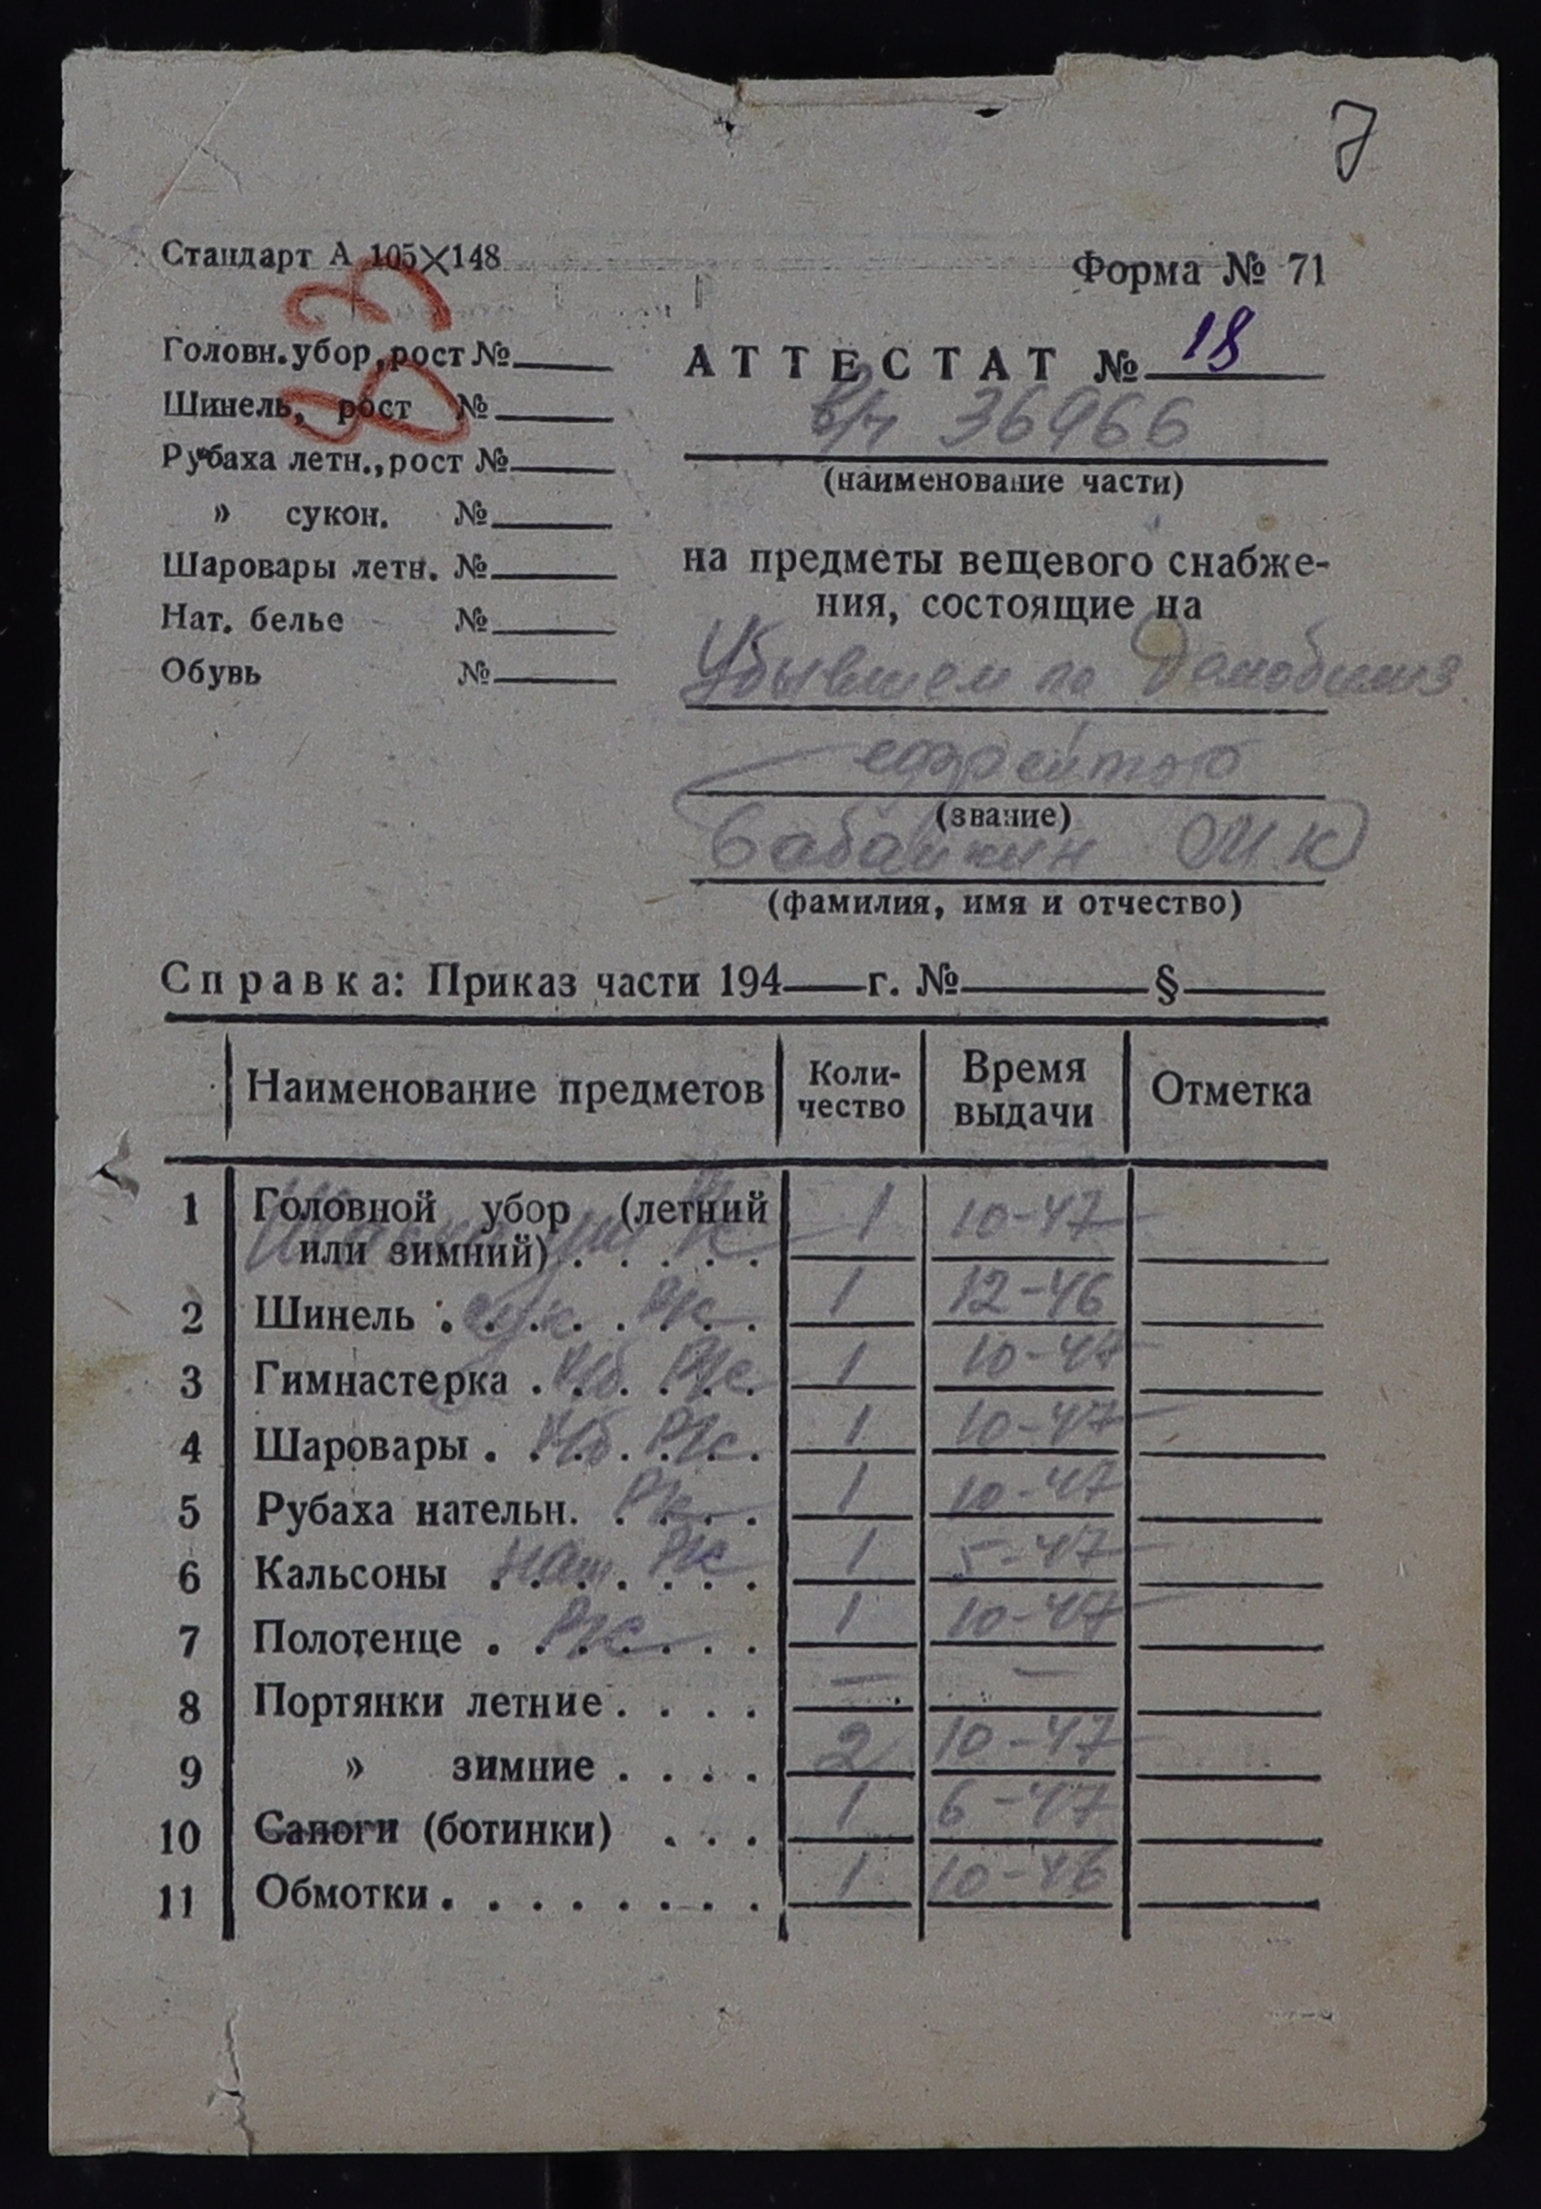 7
Стандарт А 105×148
Форма № 71
Головн. убор, рост №
Шинель, рост №
Рубаха летн., рост №
» сукон. №
Шаровары летн. №
Нат. белье №
Обувь №
АТТЕСТАТ № 18
в/ч 36966
(наименование части)
на предметы вещевого снабже-
ния, состоящие на
Убывшем по
ефрейтор
(звание)
Бабайкин И.К
(фамилия, имя и отчество)
Справка: Приказ части 194 г. № §
Наименование предметов Коли-чество Время выдачи Отметка
1 Головной убор (летний
или зимний) . . . . . 1 10-47
2 Шинель . . . . . . . сук РК 1 12-46
3 Гимнастерка . . . . . хб РК 1 10-47
4 Шаровары . . . . . . хб РК 1 10-47
5 Рубаха нательн. . . . . РК 1 10-47
6 Кальсоны . . . . . . . нат РК 1 5-47
7 Полотенце . . . . . . РК 1 10-47
8 Портянки летние . . . . — —
9 » зимние . . . . 2 10-47
10 Сапоги (ботинки) . . . 1 6-47
11 Обмотки . . . . . . . . 1 10-46